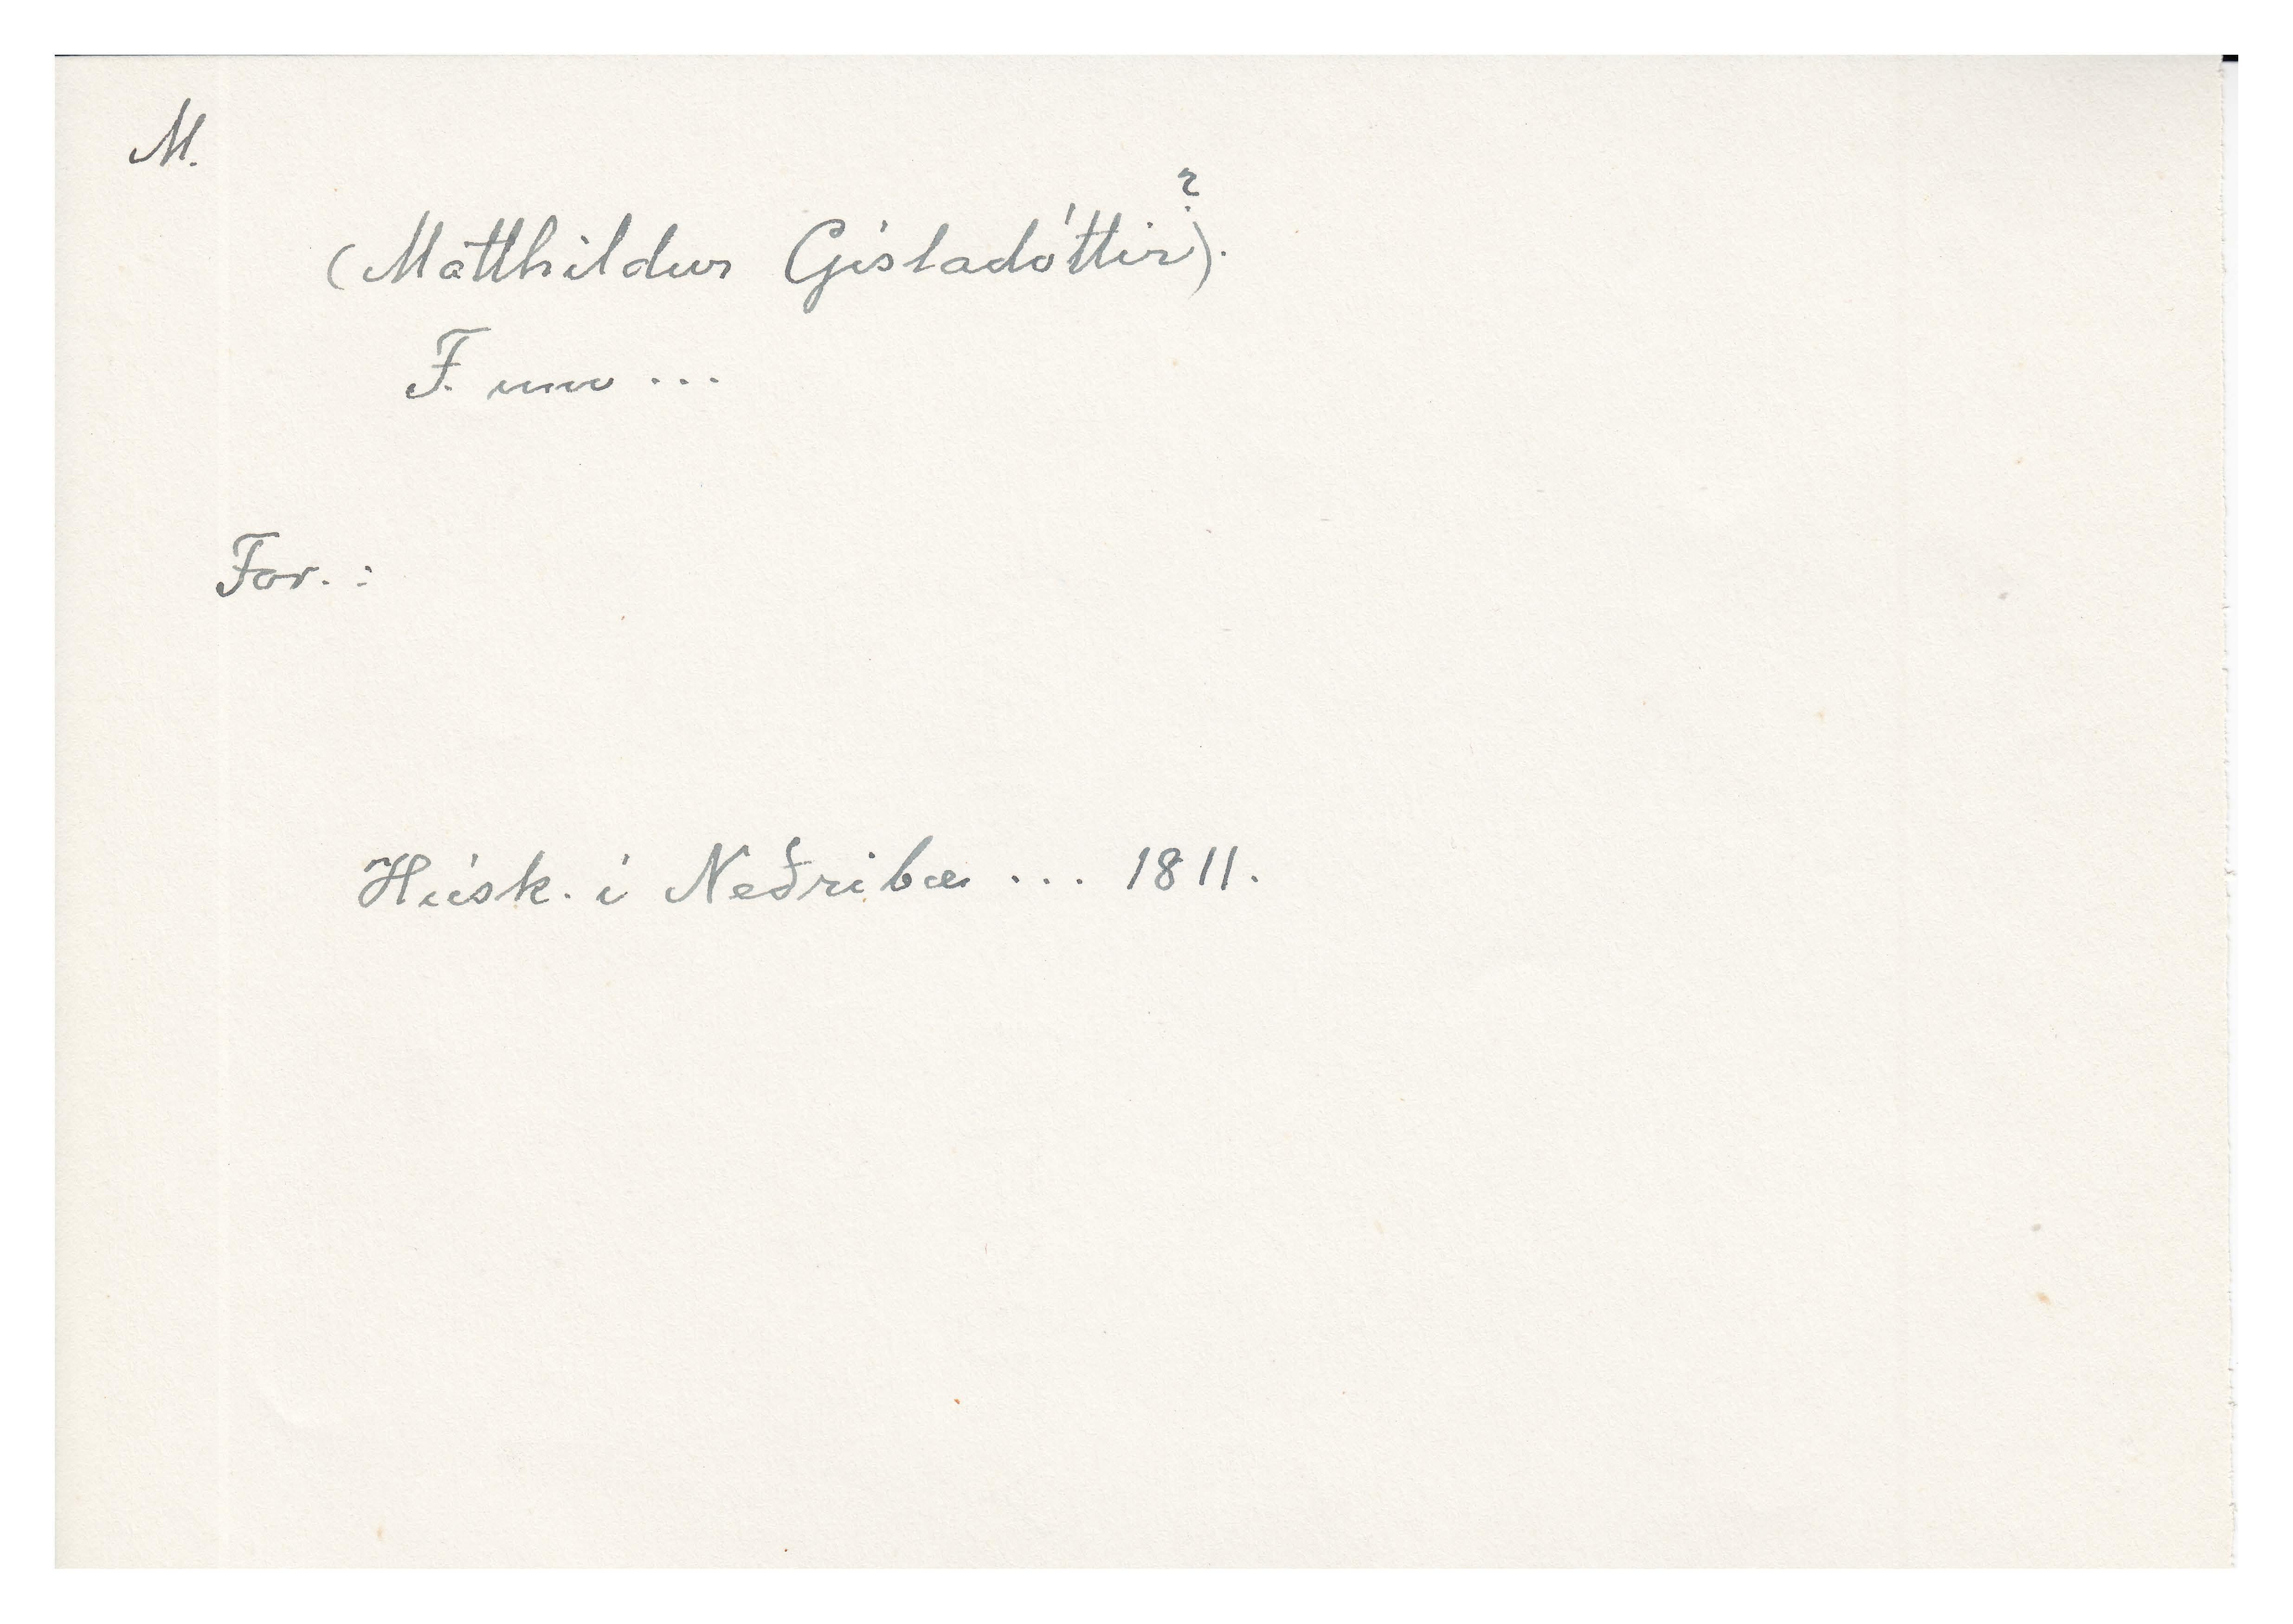 M.
(Matthildur Gísladóttir?).
F. um ...
For. :
Húsk. í Neðribæ ... 1811.